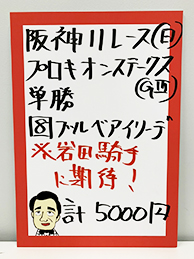 阪神11レース(日)
プロキオンステークス
(GⅢ)
単勝
⑧ブルベアイリーデ
※岩田騎手
に期待!
計5000円